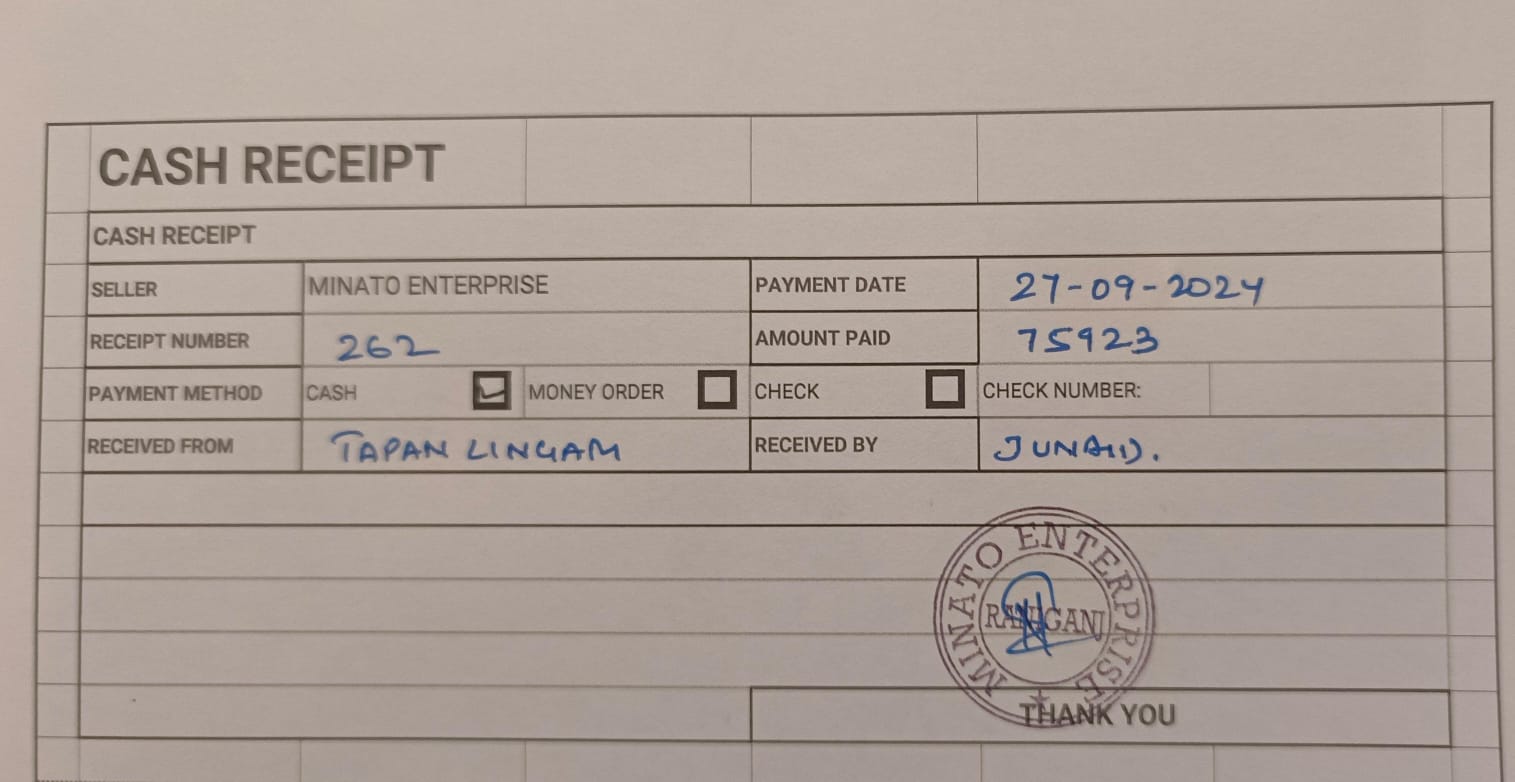 CASH RECEIPT
CASH RECEIPT
SELLER MINATO ENTERPRISE PAYMENT DATE 27-09-2024
RECEIPT NUMBER 262 AMOUNT PAID 75923
PAYMENT METHOD CASH MONEY ORDER CHECK CHECK NUMBER:
RECEIVED FROM TAPAN LINGAM RECEIVED BY JUNAID.
MINATO ENTERPRISE
RANIGANJ
THANK YOU